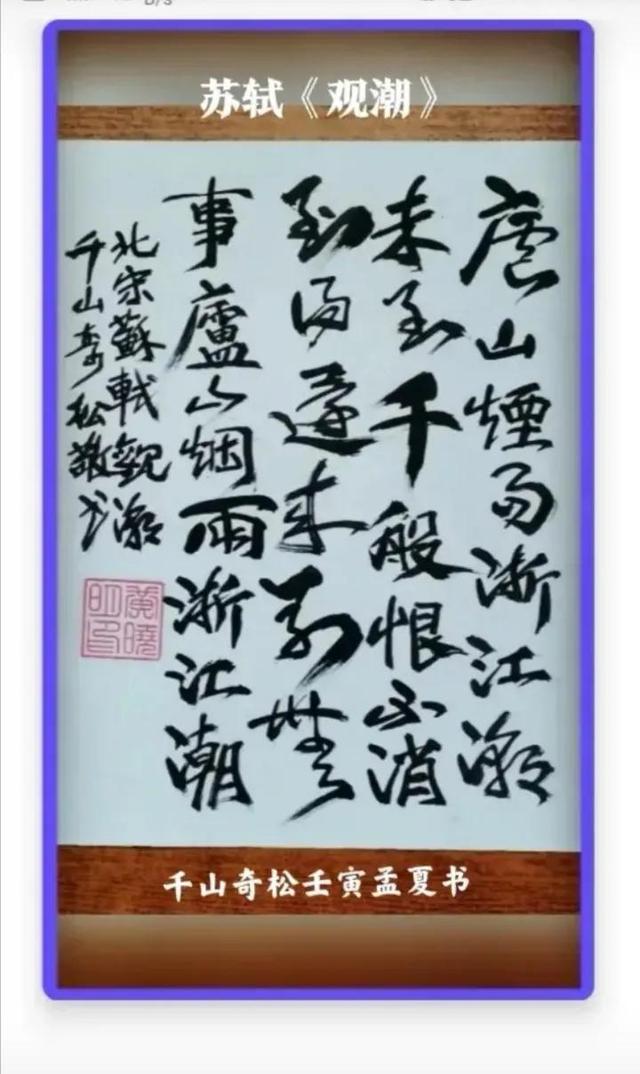 苏轼《观潮》
廬山煙雨浙江潮
未到千般恨不消
到得還來別無
事廬山烟雨浙江潮
北宋蘇軾觀潮
千山奇松敬书
黄曉明印
千山奇松壬寅孟夏书